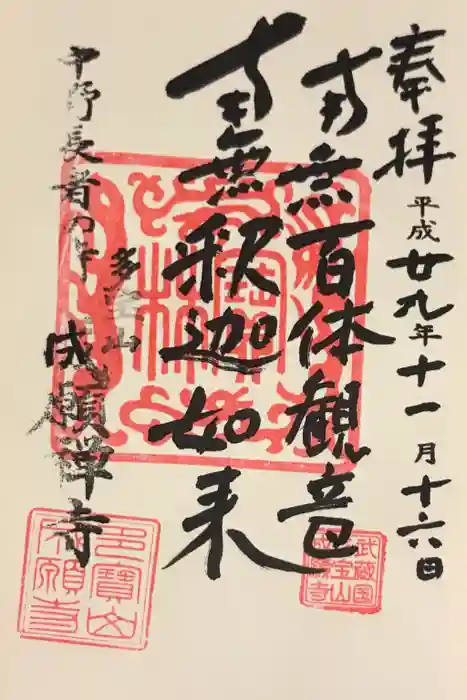 奉拝
平成廿九年十一月十六日
南無百体観音
南無釈迦如来
中野長者の寺
多宝山
成願禅寺
武蔵国
宝山
成願寺
多寶山
成願寺